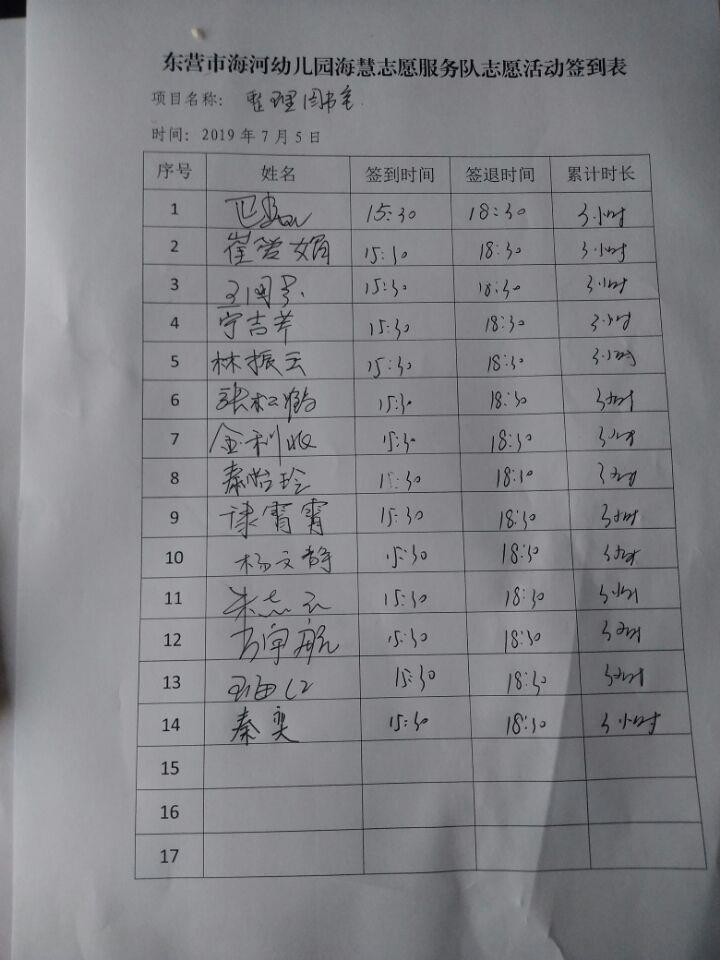 东营市海河幼儿园海慧志愿服务队志愿活动签到表
项目名称: 整理图书室
时间: 2019 年 7 月 5 日
序号 姓名 签到时间 签退时间 累计时长
1 15:30 18:30 3小时
2 崔営娟 15:30 18:30 3小时
3 15:30 18:30 3小时
4 宁吉芹 15:30 18:30 3小时
5 林振云 15:30 18:30 3小时
6 张松鹤 15:30 18:30 3小时
7 金利 15:30 18:30 3小时
8 秦怡玲 15:30 18:30 3小时
9 谏霄霄 15:30 18:30 3小时
10 杨文静 15:30 18:30 3小时
11 朱志云 15:30 18:30 3小时
12 宇航 15:30 18:30 3小时
13 15:30 18:30 3小时
14 秦奕 15:30 18:30 3小时
15
16
17